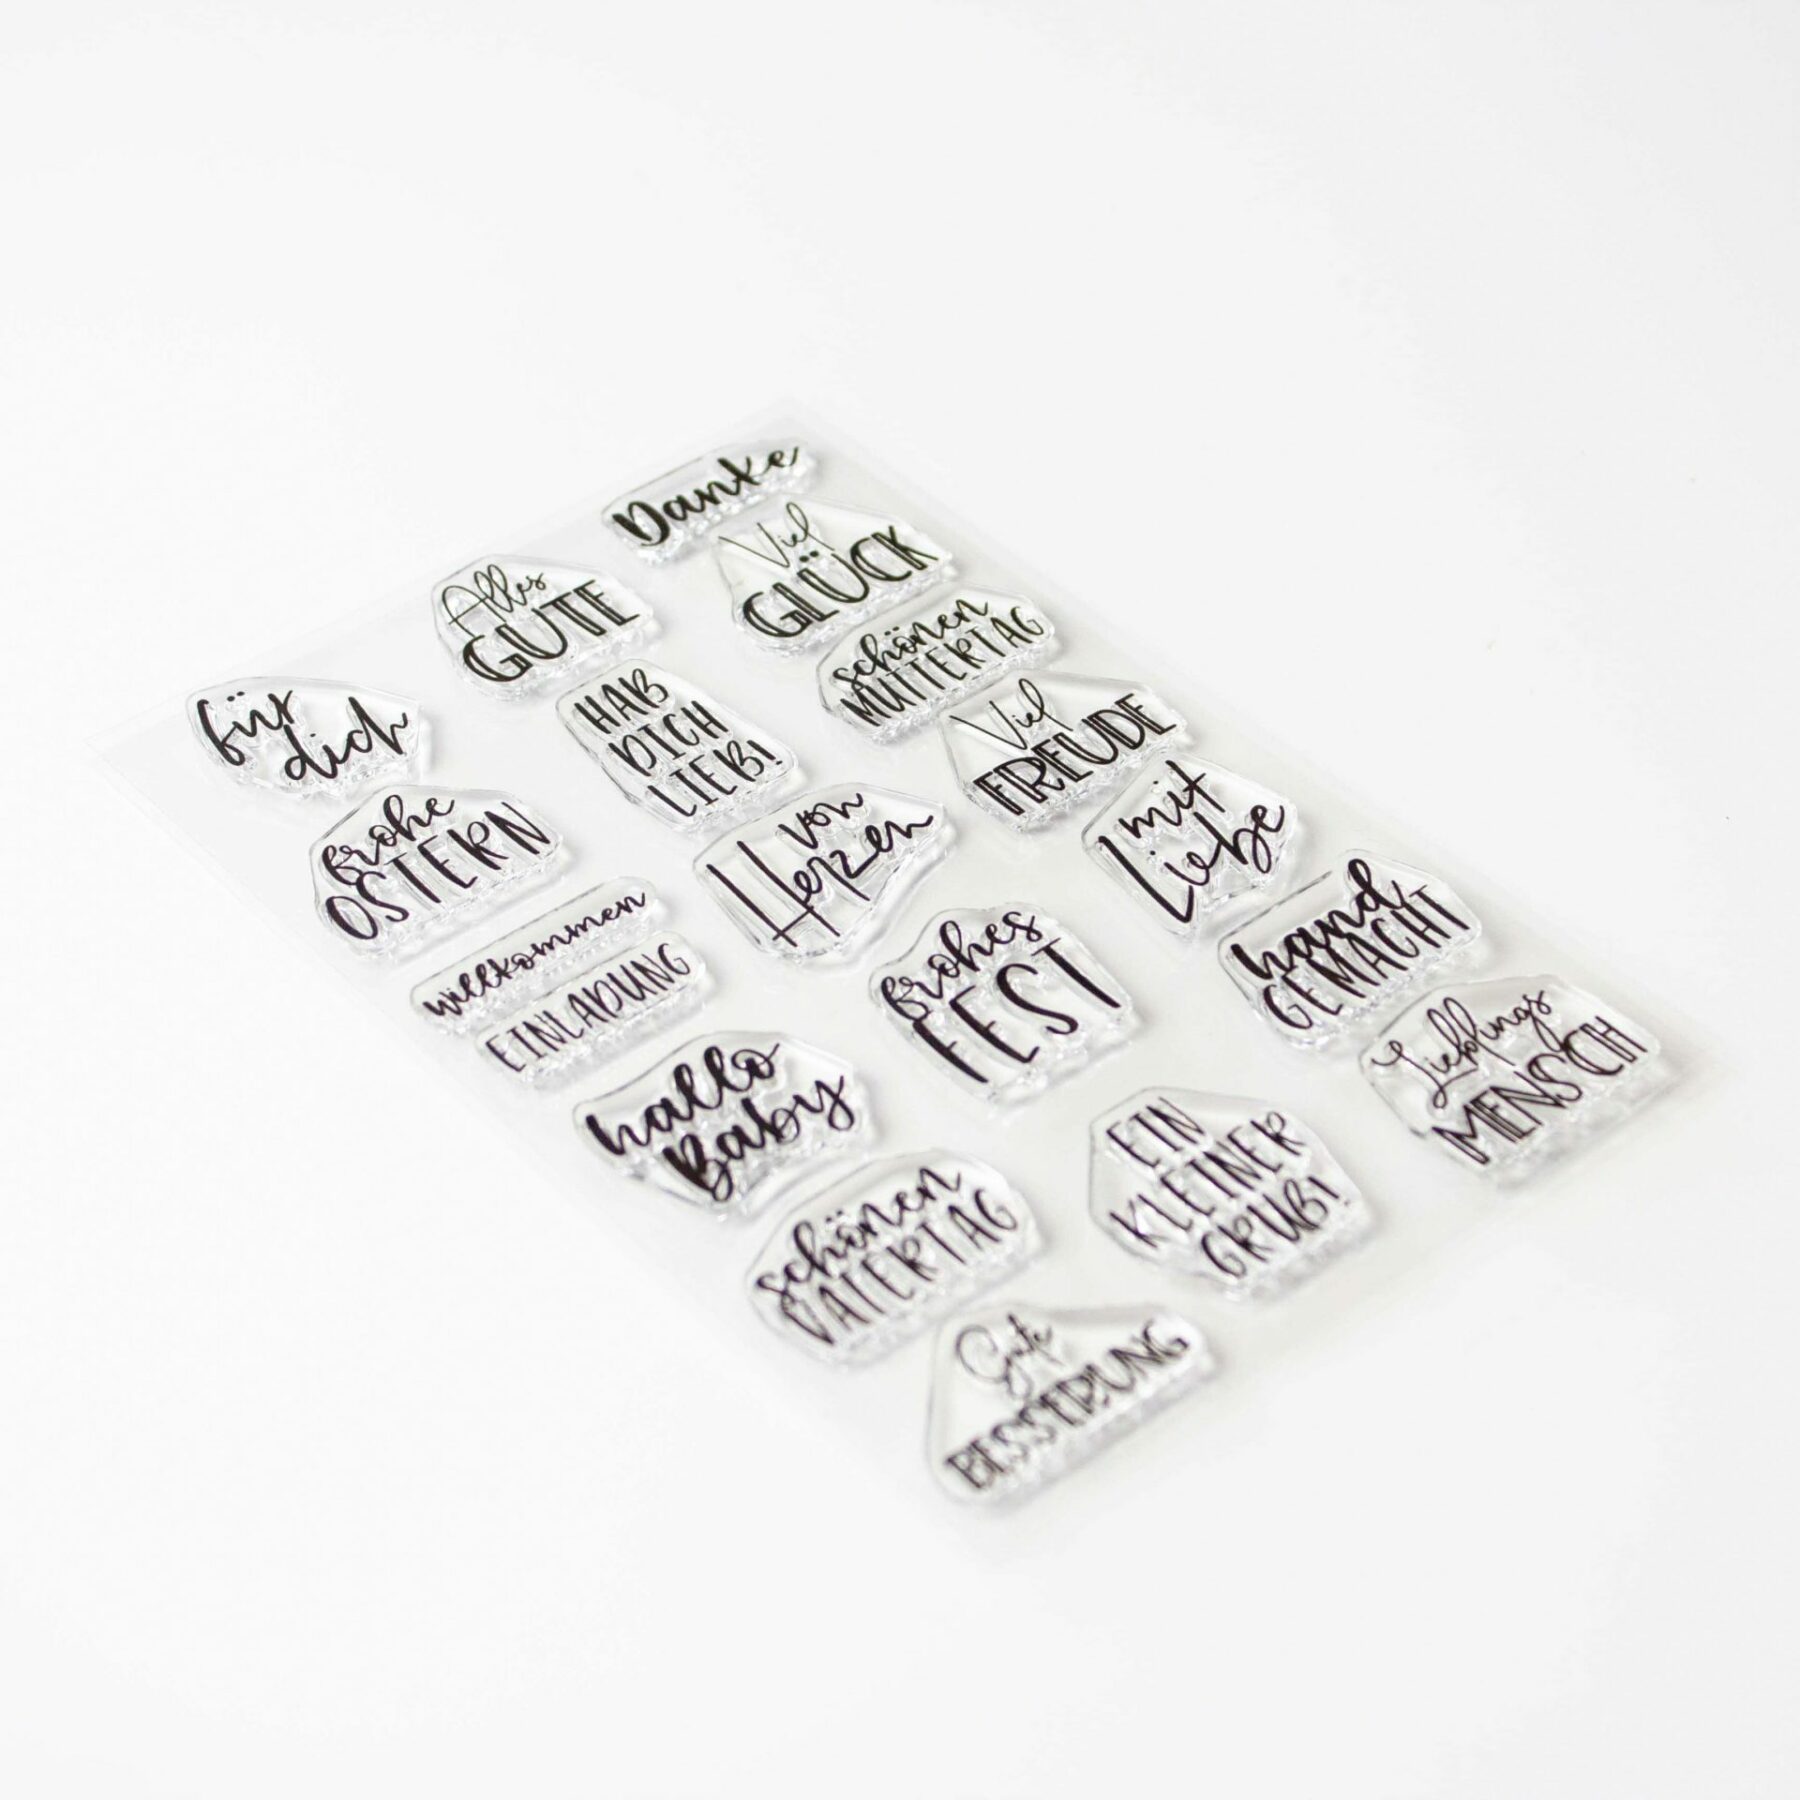 Danke
Alles
GUTE
Viel
GLÜCK
schönen
MUTTERTAG
für
dich
HAB
DICH
LIEB!
Viel
FREUDE
frohe
OSTERN
von
Herzen
mit
Liebe
willkommen
EINLADUNG
frohes
FEST
hand
GEMACHT
hallo
Baby
Lieblings
MENSCH
schönen
VATERTAG
EIN
KLEINER
GRUß!
Gute
BESSERUNG